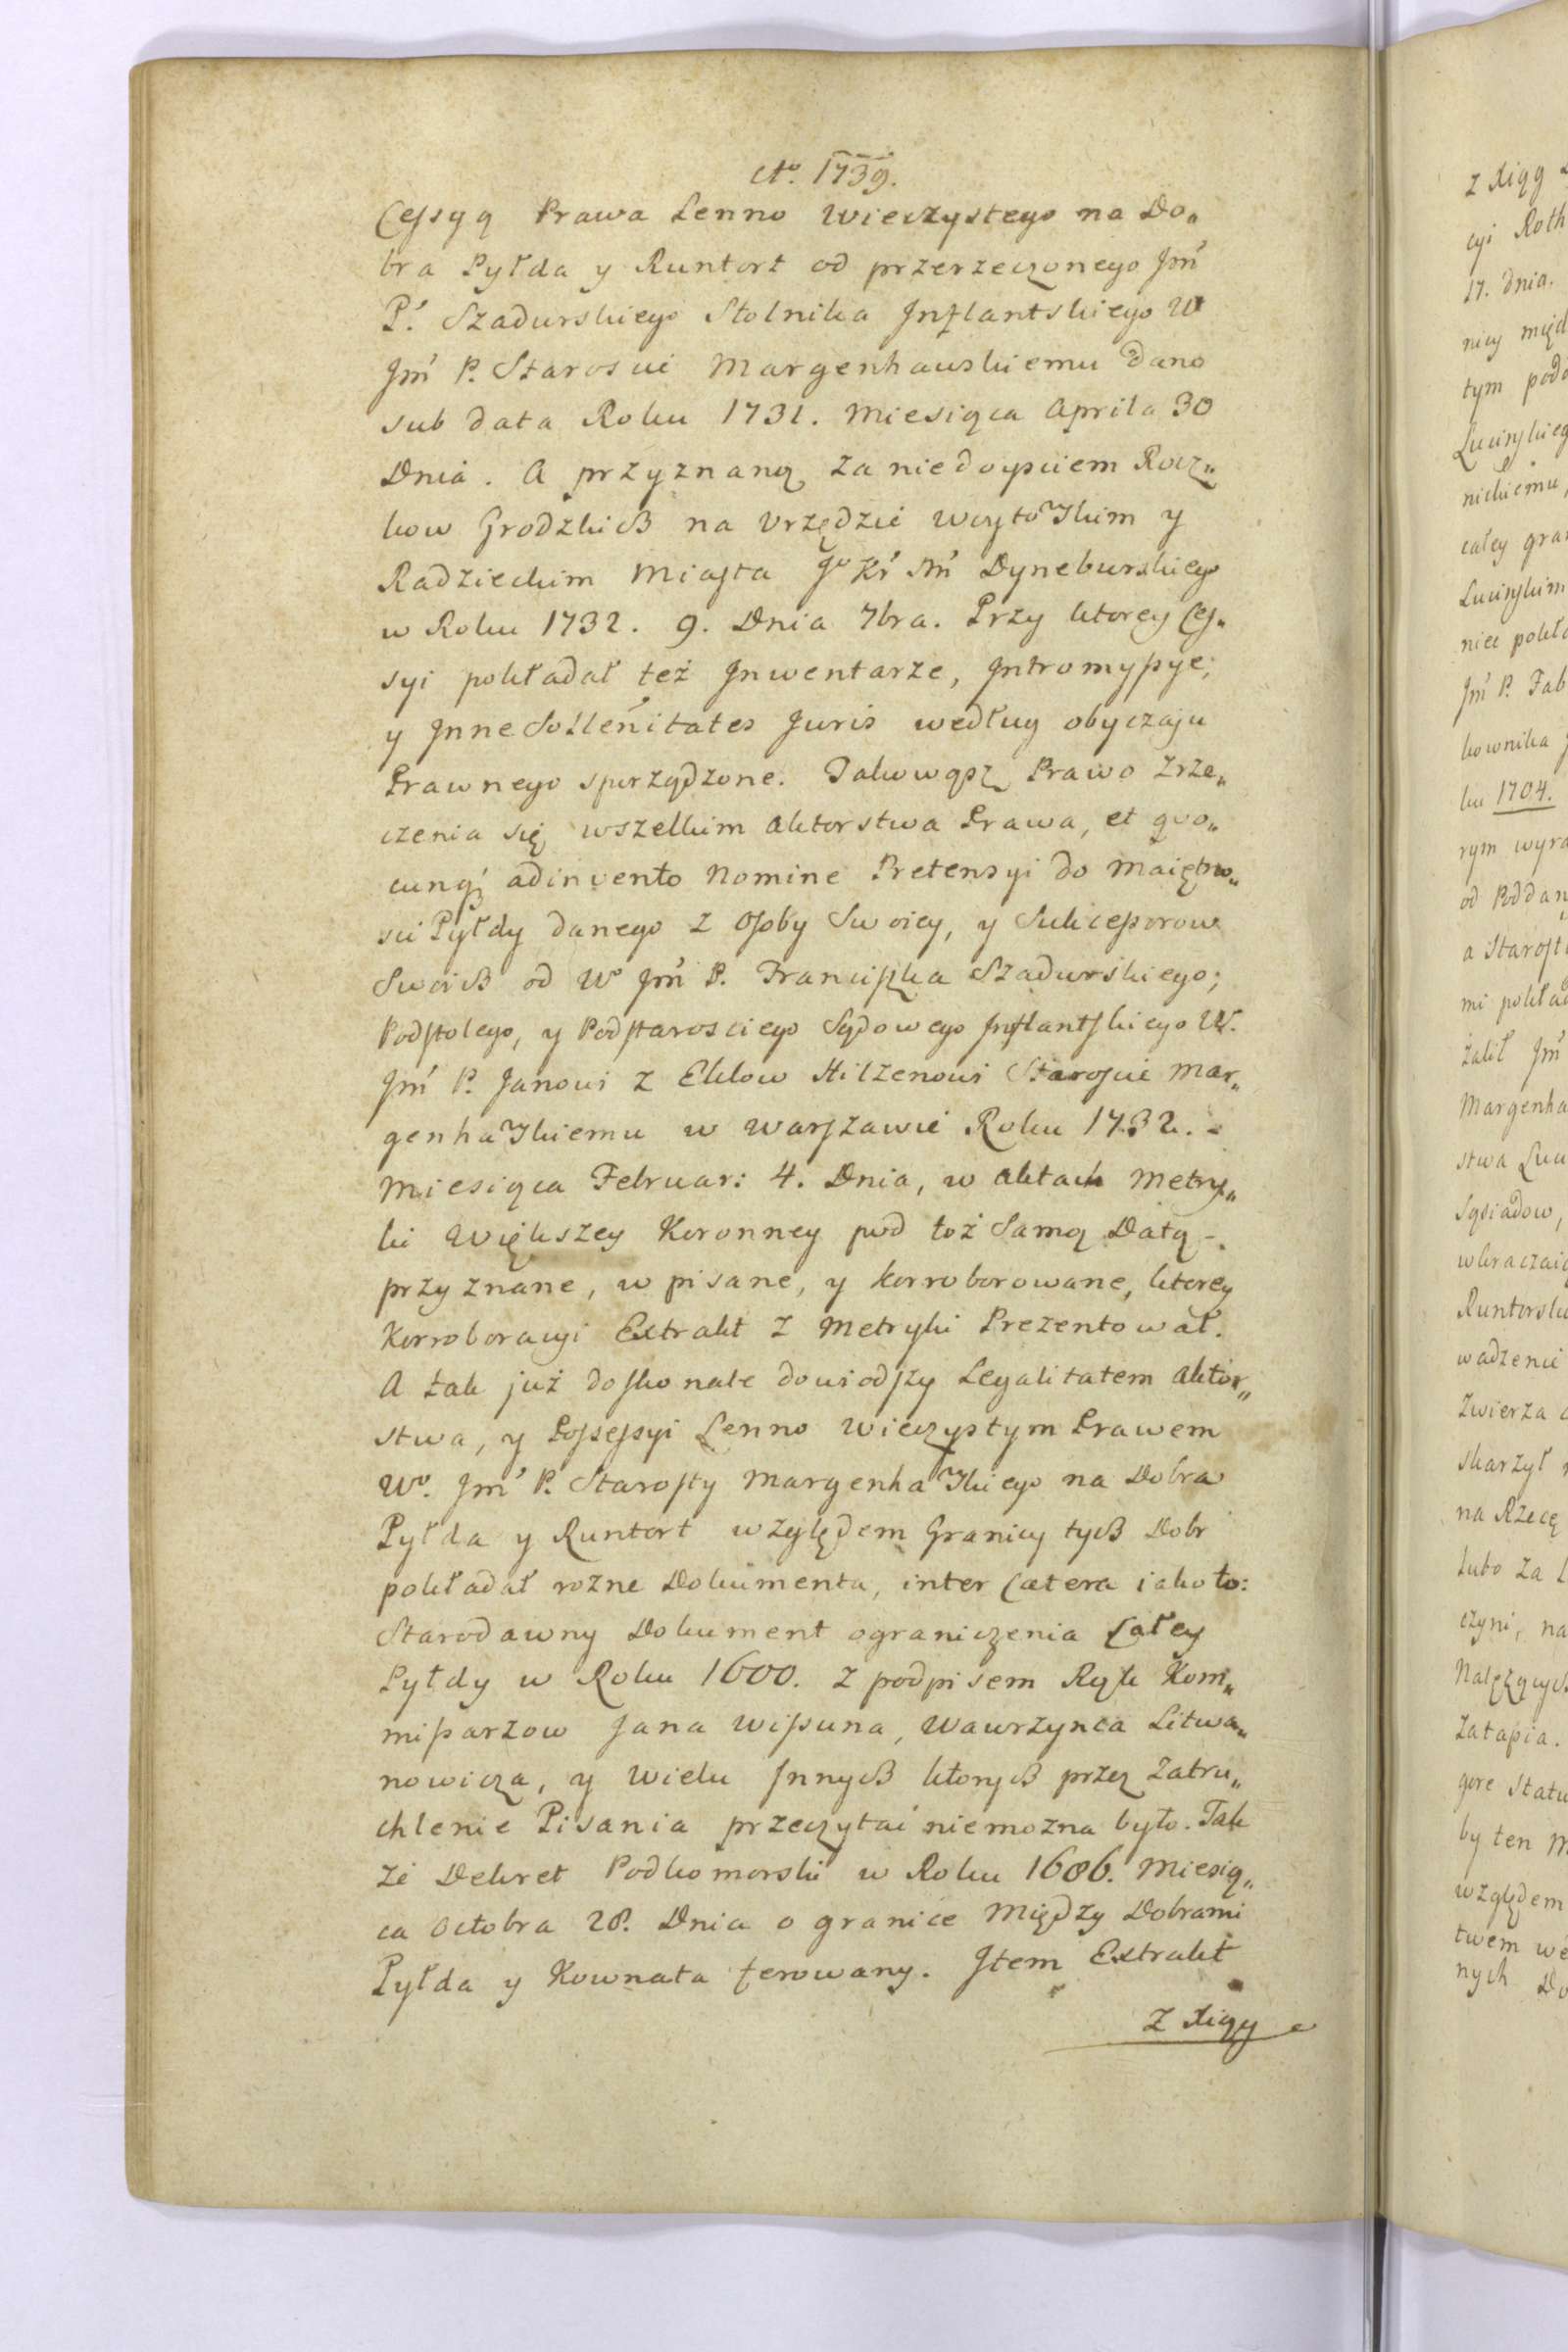 Ao. 1739.
Cessyą Prawa Lenno Wieczystego na Do„
bra Pyłda y Runtort od przerzeczonego Jmć
P. Szadurskiego Stolnika Inflantskiego W
Jmć P. Starosci Margenhauskiemu dano
sub data Roku 1731. Miesiąca Aprila 30
Dnia. A przyznaną za niedoyściem Rocz„
kow Grodzkich na Vrzędzie woytowskim y
Radzieckim Miasta Jo Kr Mć Dyneburskiego
w Roku 1732. 9. Dnia 7bra. Przy ktorey Ces„
syi pokładał też Inwentarze, Intromyssye,
y Inne Sollenitates Juris według obyczaju
Prawnego sporządzone. Takowąsz Prawo Zrze„
czenia się wszelkim aktorstwa Prawa, et quo„
cunq; adinvento Nomine Pretensyi do Maiętno„
sci Pyłdy danego z Osoby Swoiey, y Sukcessorow
Swoich od Wo Jmć P. Franciszka Szadurskiego;
Podstolego, y Podstarosciego Sądowego Inflantskiego W.
Jmć P. Janowi z Eklow Hilzenowi Staroscie Mar„
genhaskiemu w Warszawie Roku 1732. -
Miesiąca Februar: 4. Dnia, w aktach Metry„
ki Większey Koronney pod toż Samą Datą -
przyznane, w pisane, y korroborowane, ktorey
Korroboracyi Extrakt z Metryki Prezentował.
A tak już doskonale dowiodszy Legalitatem aktor„
stwa, y Possessyi Lenno wieczystym Prawem
Wo. Jmć P. Starosty Margenhaskiego na Dobra
Pyłda y Runtort względem Granicy tych Dobr
pokładał rozne Dokumenta, inter Cætera iako to:
Starodawny Dokument ograniczenia Całey
Pyłdy w Roku 1600. z podpisem Rąk Kom„
missarzow Jana Wissuna, Wawrzynca Litwa„
nowicza, y wielu Innych ktorych przez Zatru„
chlenie Pisania przeczytać niemozna było. Tak
ze Dekret Podkomorski w Roku 1686. Miesią„
ca Octobra 28. Dnia o granice Między Dobrami
Pyłda y Kownata ferowany. Item Extrakt
z Xiąg
z Xiąg
cyi Roth
17. dnia.
nicy międ
tym podo
Lucinskieg
nickiemu,
całey gran
Lucinskim
niec pokła
Jmć P. Fab
kownika J
ku 1704.
rym wyra
od Poddan
a Starost
mi pokład
żalił Jmć
Margenha
stwa Luc
Sąsiadow,
wkraczaią
Runtorsk
wadzenie
Zwierza
skarzył
na Rzecę
lubo za
czyni, na
Należących
Zatapia.
gore Statu
by ten M
względem
twem we
nych Do